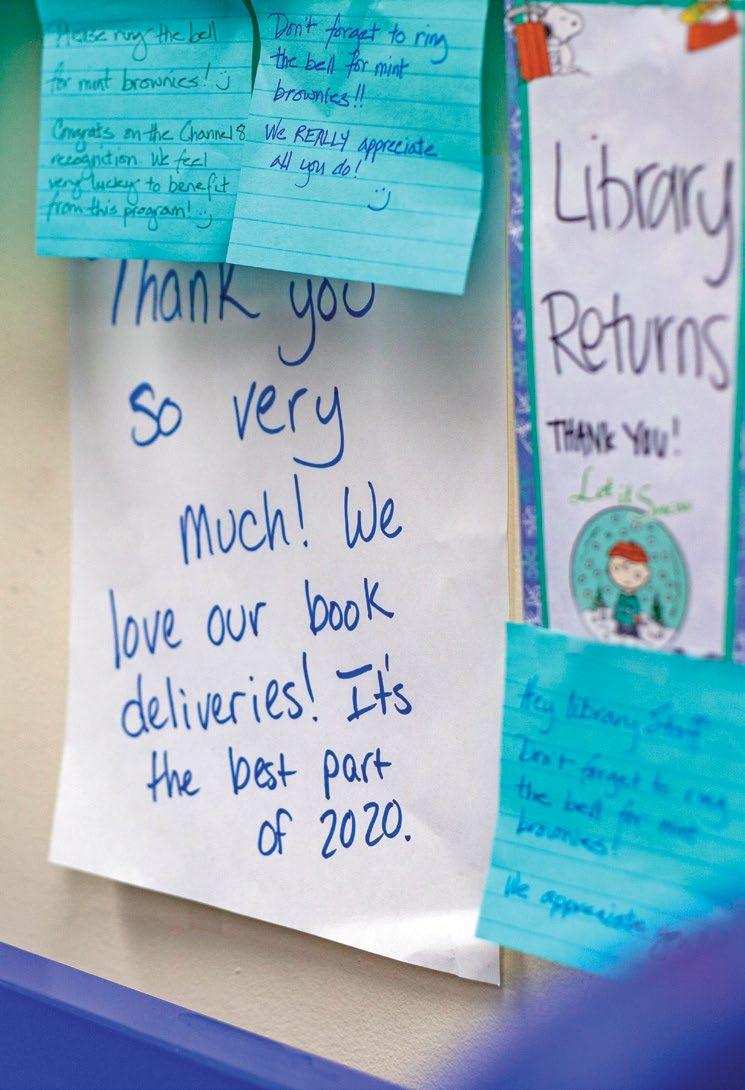 Please ring the bell
for mint brownies!
Congrats on the Channel 8
recognition. We feel
very lucky to benefit
from this program!
Don't forget to ring
the bell for mint
brownies!!
We REALLY appreciate
all you do!
Thank you
so very
much! We
love our book
deliveries! It's
the best part
of 2020.
Library
Returns
THANK YOU!
Let it Snow
Hey Library Staff
Don't forget to ring
the bell for mint
brownies!
We appreciate